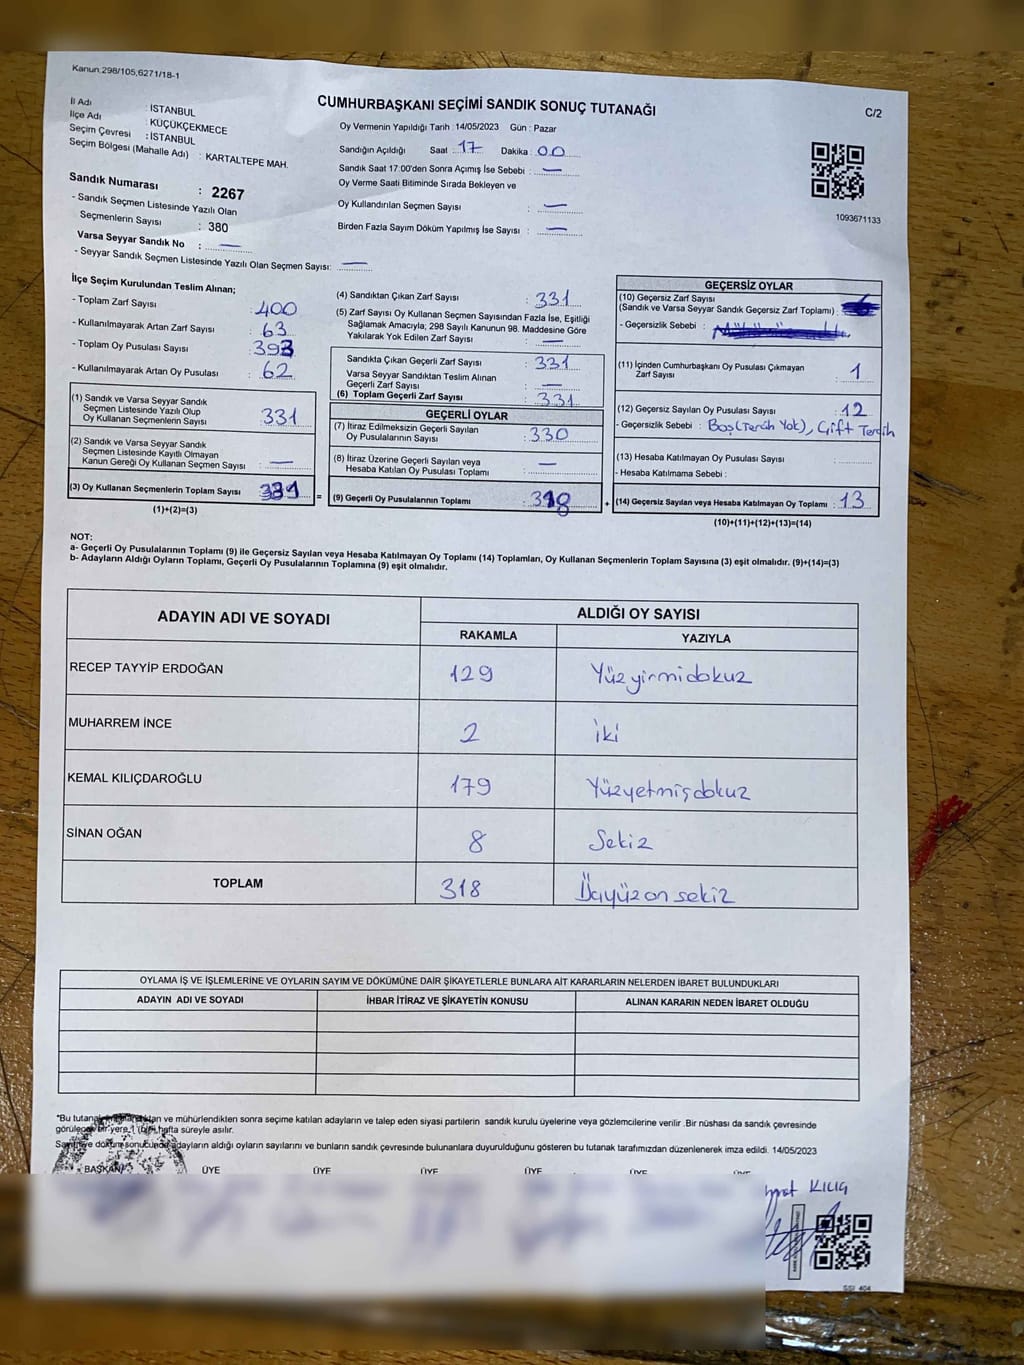 Kanun.298/105,6271/18-1
CUMHURBAŞKANI SEÇİMİ SANDIK SONUÇ TUTANAĞI
C/2
İl Adı : İSTANBUL
İlçe Adı : KÜÇÜKÇEKMECE
Seçim Çevresi : İSTANBUL
Seçim Bölgesi (Mahalle Adı) : KARTALTEPE MAH.
Sandık Numarası : 2267
- Sandık Seçmen Listesinde Yazılı Olan
Seçmenlerin Sayısı : 380
Varsa Seyyar Sandık No : —
- Seyyar Sandık Seçmen Listesinde Yazılı Olan Seçmen Sayısı: —
Oy Vermenin Yapıldığı Tarih : 14/05/2023 Gün : Pazar
Sandığın Açıldığı Saat : 17 Dakika : 00
Sandık Saat 17:00'den Sonra Açımış İse Sebebi : —
Oy Verme Saati Bitiminde Sırada Bekleyen ve
Oy Kullandırılan Seçmen Sayısı : —
Birden Fazla Sayım Döküm Yapılmış İse Sayısı : —
1093671133
İlçe Seçim Kurulundan Teslim Alınan;
- Toplam Zarf Sayısı : 400
- Kullanılmayarak Artan Zarf Sayısı : 63
- Toplam Oy Pusulası Sayısı : 393
- Kullanılmayarak Artan Oy Pusulası : 62
(1) Sandık ve Varsa Seyyar Sandık
Seçmen Listesinde Yazılı Olup
Oy Kullanan Seçmenlerin Sayısı : 331
(2) Sandık ve Varsa Seyyar Sandık
Seçmen Listesinde Kayıtlı Olmayan
Kanun Gereği Oy Kullanan Seçmen Sayısı : —
(3) Oy Kullanan Seçmenlerin Toplam Sayısı : 331 =
(1)+(2)=(3)
(4) Sandıktan Çıkan Zarf Sayısı : 331
(5) Zarf Sayısı Oy Kullanan Seçmen Sayısından Fazla İse, Eşitliği
Sağlamak Amacıyla; 298 Sayılı Kanunun 98. Maddesine Göre
Yakılarak Yok Edilen Zarf Sayısı : —
Sandıkta Çıkan Geçerli Zarf Sayısı : 331
Varsa Seyyar Sandıktan Teslim Alınan
Geçerli Zarf Sayısı : —
(6) Toplam Geçerli Zarf Sayısı : 331
GEÇERLİ OYLAR
(7) İtiraz Edilmeksizin Geçerli Sayılan
Oy Pusulalarının Sayısı : 330
(8) İtiraz Üzerine Geçerli Sayılan veya
Hesaba Katılan Oy Pusulası Toplamı : —
(9) Geçerli Oy Pusulalarının Toplamı : 318 +
GEÇERSİZ OYLAR
(10) Geçersiz Zarf Sayısı
(Sandık ve Varsa Seyyar Sandık Geçersiz Zarf Toplamı) :
- Geçersizlik Sebebi :
(11) İçinden Cumhurbaşkanı Oy Pusulası Çıkmayan
Zarf Sayısı : 1
(12) Geçersiz Sayılan Oy Pusulası Sayısı : 12
- Geçersizlik Sebebi : Boş(Tercih Yok), Çift Tercih
(13) Hesaba Katılmayan Oy Pusulası Sayısı :
- Hesaba Katılmama Sebebi :
(14) Geçersiz Sayılan veya Hesaba Katılmayan Oy Toplamı : 13
(10)+(11)+(12)+(13)=(14)
NOT:
a- Geçerli Oy Pusulalarının Toplamı (9) ile Geçersiz Sayılan veya Hesaba Katılmayan Oy Toplamı (14) Toplamları, Oy Kullanan Seçmenlerin Toplam Sayısına (3) eşit olmalıdır. (9)+(14)=(3)
b- Adayların Aldığı Oyların Toplamı, Geçerli Oy Pusulalarının Toplamına (9) eşit olmalıdır.
ADAYIN ADI VE SOYADI
ALDIĞI OY SAYISI
RAKAMLA YAZIYLA
RECEP TAYYİP ERDOĞAN 129 Yüzyirmidokuz
MUHARREM İNCE 2 iki
KEMAL KILIÇDAROĞLU 179 Yüzyetmişdokuz
SİNAN OĞAN 8 Sekiz
TOPLAM 318 Üçyüzonsekiz
OYLAMA İŞ VE İŞLEMLERİNE VE OYLARIN SAYIM VE DÖKÜMÜNE DAİR ŞİKAYETLERLE BUNLARA AİT KARARLARIN NELERDEN İBARET BULUNDUKLARI
ADAYIN ADI VE SOYADI İHBAR İTİRAZ VE ŞİKAYETİN KONUSU ALINAN KARARIN NEDEN İBARET OLDUĞU
*Bu tutanak ve mühürlendikten sonra seçime katılan adayların ve talep eden siyasi partilerin sandık kurulu üyelerine veya gözlemcilerine verilir .Bir nüshası da sandık çevresinde
görülecek bir yere 1 (bir) hafta süreyle asılır.
Sayım ve döküm sonucunda adayların aldığı oyların sayılarını ve bunların sandık çevresinde bulunanlara duyurulduğunu gösteren bu tutanak tarafımızdan düzenlenerek imza edildi. 14/05/2023
BAŞKAN ÜYE ÜYE ÜYE ÜYE ÜYE ÜYE
KILIÇ
SSI 404